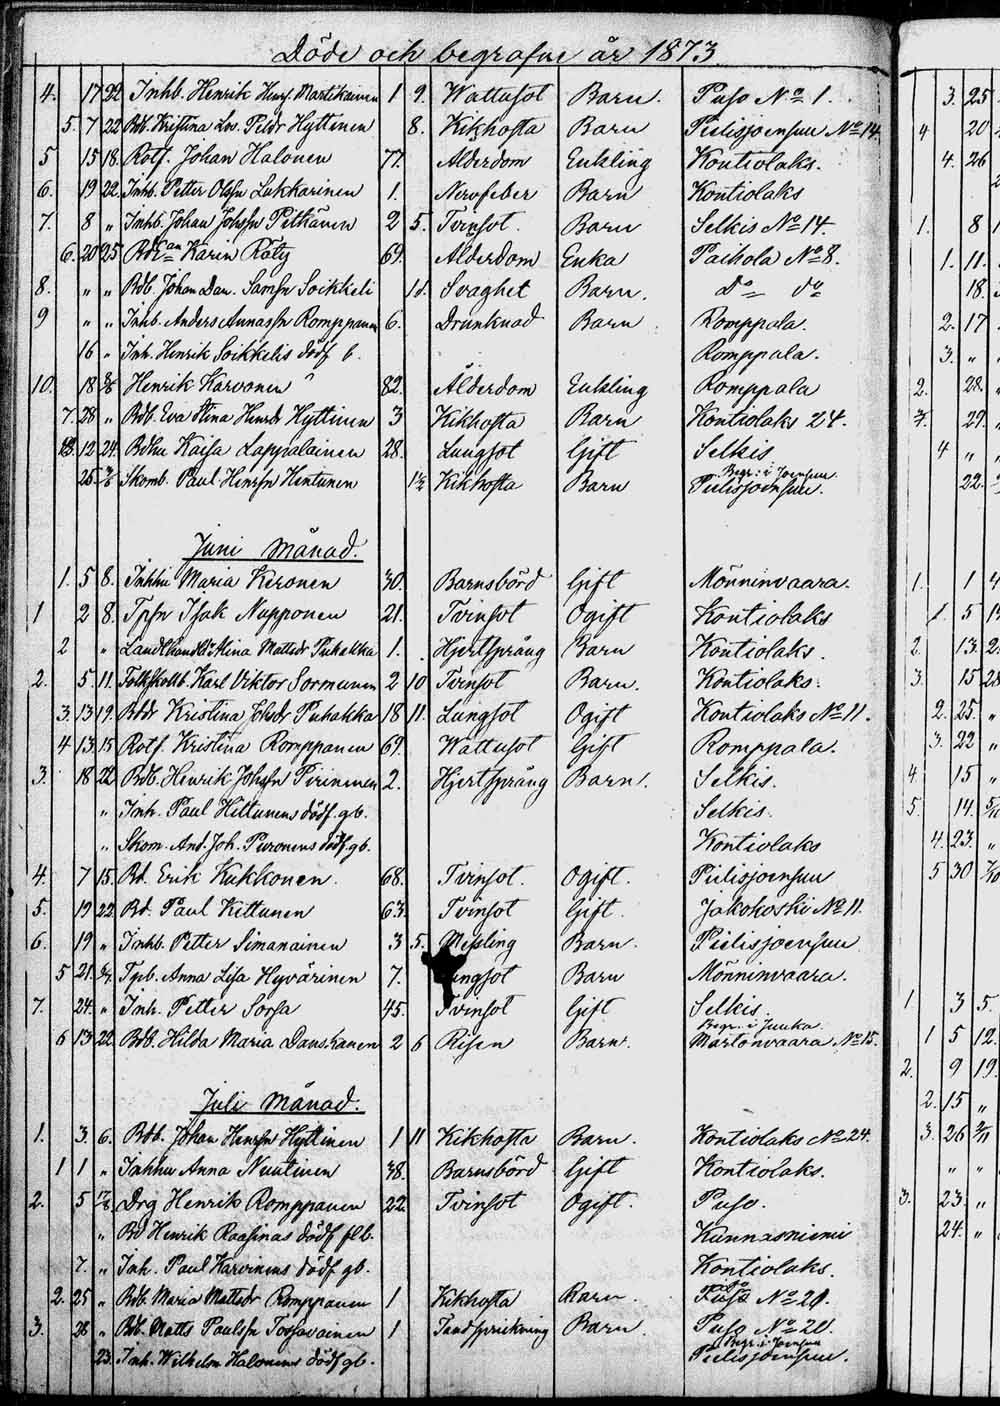 Döde och begrafne år 1873
4. 17 22 Inhb. Henrik Henrs. Martikainen 1 9. Wattusot Barn. Puso No 1.
5. 7 22 Bdb. Kristina Lov. Pedr Hyttinen 8. Kikhosta Barn Pielisjoensuu No 14
5 15 18. Rotf. Johan Halonen 77. Ålderdom Enkling Kontiolaks.
6. 19 22. Inhb. Petter Olssn Lukkarinen 1. Nervfeber Barn Kontiolaks
7. 8 " Inhb. Johan Johssn Pitkänen 2 5. Tvinsot. Barn Selkis No 14.
6. 20 25 Bdeän Karin Räty 69. Ålderdom Enka Paihola No 8.
8. " " Bdb. Johan Dan. Samsn Soikkeli 1d. Svaghet Barn. do do
9 " " Inhb. Anders Annassn Romppanen 6. Drunknad Barn Romppala.
16 " Inh. Henrik Soikkelis dödf b. Romppala.
10. 18 Henrik Karvonen 82. Ålderdom Enkling Romppala
7. 28 " Bdb. Eva Stina Henrdr Hyttinen 3 Kikhosta Barn Kontiolaks 24.
8. 12 24. Bdhu Kaisa Lappalainen 28. Lungsot Gift Selkis
Begr. i Joensuu
25. Skomb. Paul Henrsn Hintunen 1½ Kikhosta Barn Pielisjoensuu.
Juni Månad.
1. 5 8. Inhhu Maria Keronen 30. Barnsbörd Gift Mönninvaara.
1 2 8. Tpsn Isak Nupponen 21. Tvinsot Ogift Kontiolaks
2 " Landthandldr Mina Mattsdr Puhakka 1. Hjertsprång Barn Kontiolaks.
2. 5. 11. Folkskollb. Karl Viktor Sormunen 2 10 Tvinsot Barn. Kontiolaks.
3. 13 19. Bddr Kristina Johsdr Puhakka 18 11. Lungsot Ogift Kontiolaks No 11.
4 13. 15 Rotf. Kristina Romppanen 69. Wattusot Gift Romppala.
3. 18 22 Bdb. Henrik Johssn Piirinen 2. Hjertsprång Barn. Selkis.
" Inh. Paul Hiltunens dödf. gb. Selkis.
" Skom. And. Joh. Puronens dödf. gb. Kontiolaks
4. 7 15. Bd. Erik Kukkonen. 68. Tvinsot. Ogift. Pielisjoensuu
5. 19 22. Bd. Paul Kettunen 63. Tvinsot Gift. Jakokoski No 11.
6. 19 " Inhb. Petter Simanainen 3 5. Messling Barn. Pielisjoensuu
5 21. Tpb. Anna Lisa Hyvärinen 7. Lungsot Barn Mönninvaara.
7. 24. " Inh. Petter Sorsa 45. Tvinsot Gift Selkis.
Begr. i Juuka
6 13 22. Bdb. Hilda Maria Danskanen 2 6 Risen Barn. Martonvaara No 15.
Juli Månad.
1. 3. 6. Bdb. Johan Henrsn Hyttinen 1 11 Kikhosta Barn. Kontiolaks No 24.
1 1 " Inhhu Anna Nuutinen 38. Barnsbörd Gift Kontiolaks.
2. 5 Drg Henrik Romppanen 22. Tvinsot Ogift. Puso.
" Bd Henrik Raasinas dödf flb. Kunnasniemi
7. " Inh. Paul Karvinens dödf gb. Kontiolaks.
2. 25 " Bdb. Maria Mattsdr Romppanen 1 Kikhosta Barn. Puso No 21.
3. 26 " Bdb. Matts Paulssn Tossavainen 1 Tandsprickning Barn. Puso No 20.
Begr. i Joensuu
23. Inh. Wilhelm Halonens dödf gb. Pielisjoensuu.